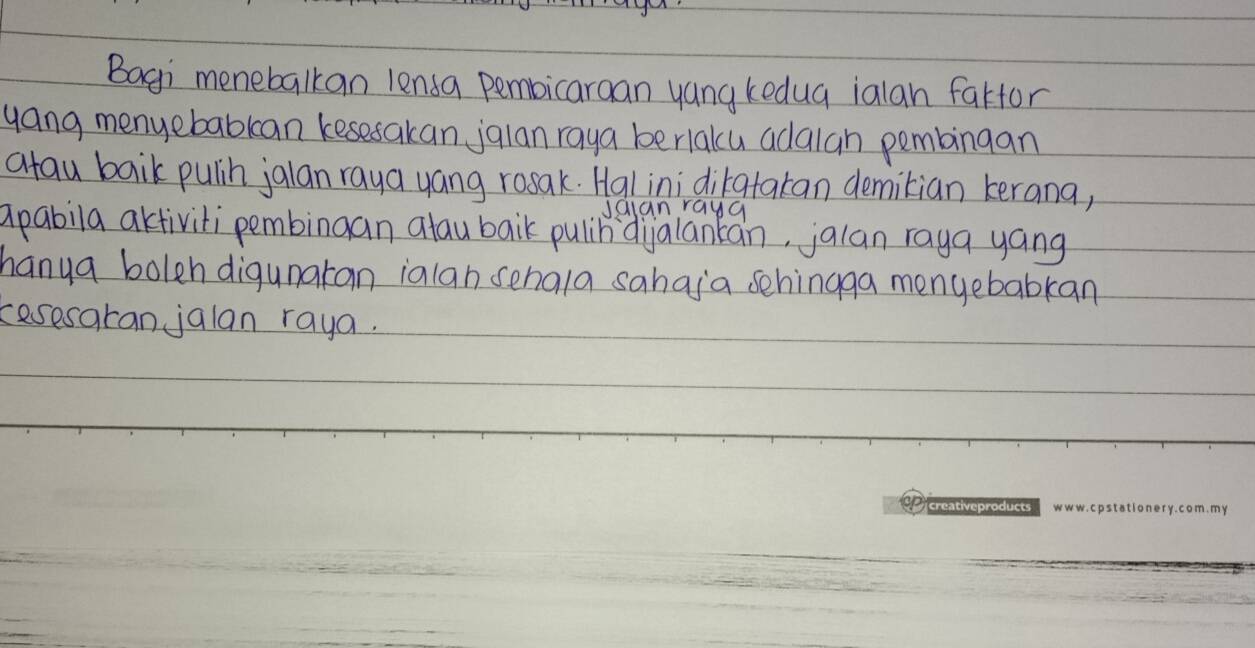 Bagi menebalkan lensa pembicaraan yang kedua ialah faktor
yang menyebabkan kesesakan jalan raya berlaku adalah pembinaan
atau baik pulih jalan raya yang rosak. Hal ini dikatakan demikian kerana,
jalan raya
apabila aktiviti pembinaan atau baik pulih dijalankan, jalan raya yang
hanya boleh digunakan ialah sehala sahaja sehingga menyebabkan
kesesakan jalan raya.
cp creativeproducts www.cpstationery.com.my